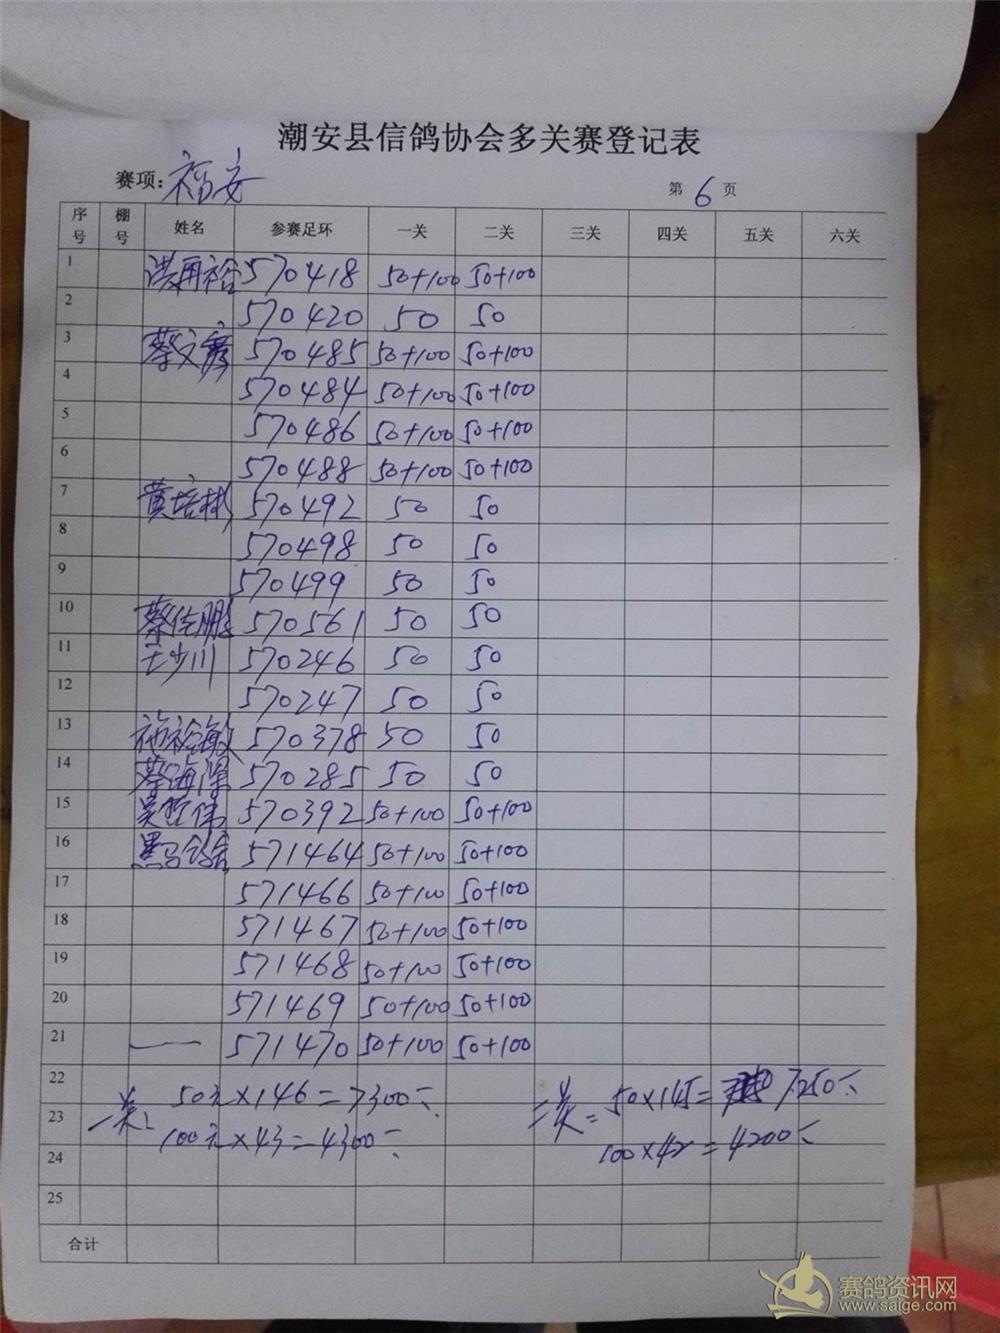 潮安县信鸽协会多关赛登记表
赛项: 福安 第 6 页
序号 棚号 姓名 参赛足环 一关 二关 三关 四关 五关 六关
1 洪再裕 570418 50+100 50+100
2 570420 50 50
3 蔡文 570485 50+100 50+100
4 570484 50+100 50+100
5 570486 50+100 50+100
6 570488 50+100 50+100
7 黄培彬 570492 50 50
8 570498 50 50
9 570499 50 50
10 蔡佳鹏 570561 50 50
11 王少川 570246 50 50
12 570247 50 50
13 施裕敏 570378 50 50
14 蔡海 570285 50 50
15 吴 伟 570392 50+100 50+100
16 黑马鸽舍 571464 50+100 50+100
17 571466 50+100 50+100
18 571467 50+100 50+100
19 571468 50+100 50+100
20 571469 50+100 50+100
21 571470 50+100 50+100
22 50元×146=7300 50×145= 7250
23 一关: 100元×43=4300 二关= 100×42=4200
24
25
合计
赛鸽资讯网
www.saige.com